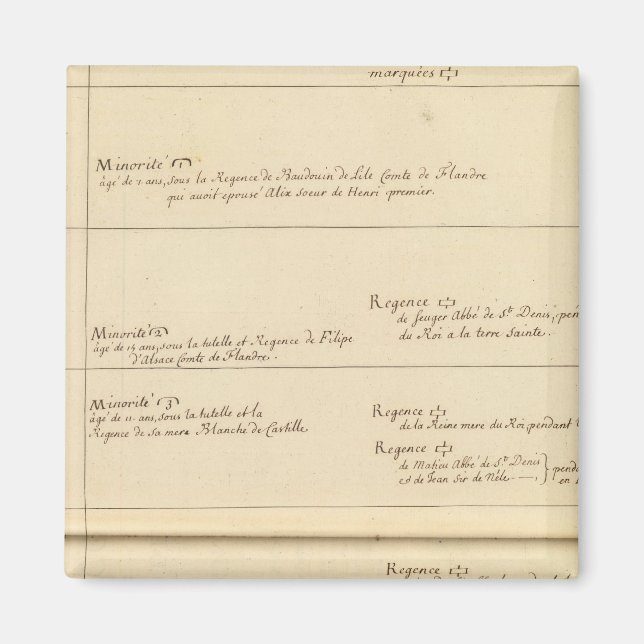 marquées
Minorité 1
âgé de 7 ans, sous la Regence de Baudouin de Lile Comte de Flandre
qui auoit epousé Alix soeur de Henri premier.
Regence
de Seuger Abbé de St. Denis, pen
du Roi a la terre Sainte.
Minorité 2
âgé de 15 ans, sous la tutelle et Regence de Filipe
d'Alsace Comte de Flandre.
Minorité 3
âgé de 11 ans, sous la tutelle et la
Regence de sa mere Blanche de Castille
Regence
de la Reine mere du Roi, pendant
Regence
de Matieu Abbé de St. Denis
et de Jean Sir de Néle
pend
en
Regence